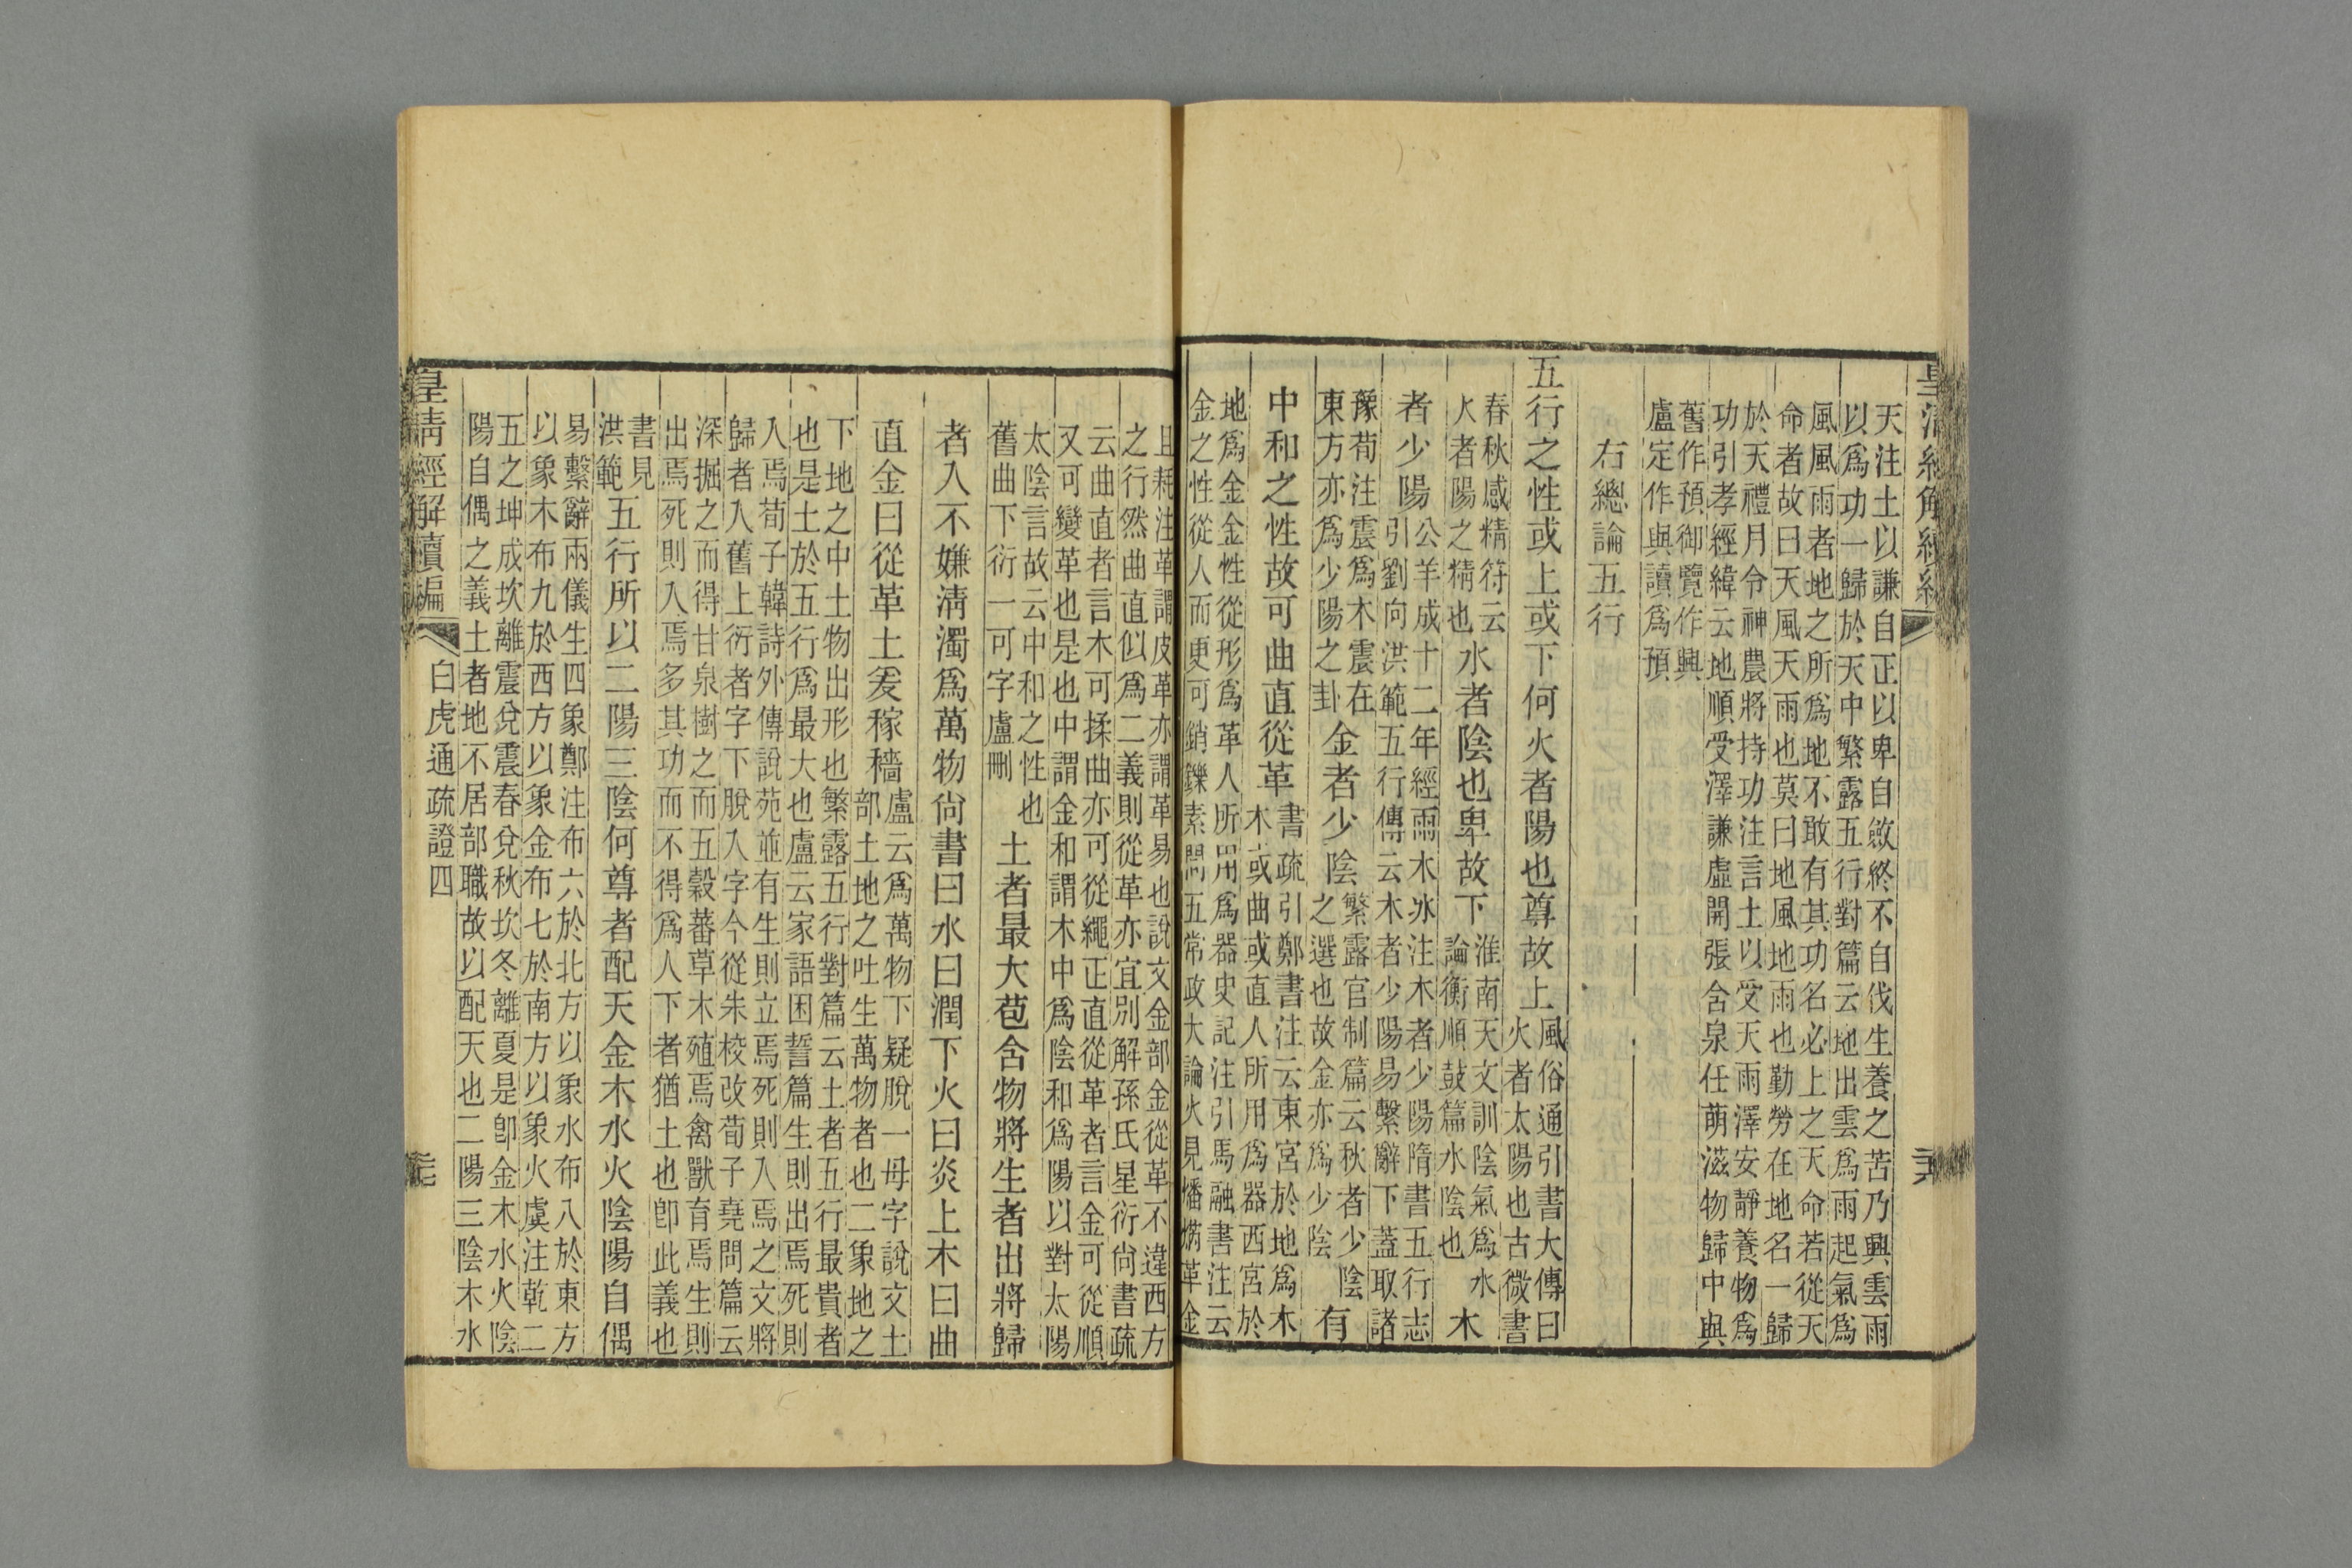 天注土以謙自正以卑自斂終不自伐生養之苦乃興雲雨
以爲功一歸於天中繁露五行對篇云地出雲爲雨起氣爲
風風雨者地之所爲地不敢有其功名必上之天命若從天
命者故曰天風天雨也莫曰地風地雨也勤勞在地名一歸
於天禮月令神農將持功注言土以受天雨澤安靜養物爲
功引孝經緯云地順受澤謙虛開張含泉任萌滋物歸中與
舊作預御覽作興
盧定作與讀爲預
右總論五行
五行之性或上或下何火者陽也尊故上
風俗通引書大傳曰
火者太陽也古微書
春秋感精符云
火者陽之精也
水者陰也卑故下
淮南天文訓陰氣爲水
論衡順鼓篇水陰也
木
者少陽
公羊成十二年經雨木冰注木者少陽隋書五行志
引劉向洪範五行傳云木者少陽易繫辭下蓋取諸
豫荀注震爲木震在
東方亦爲少陽之卦
金者少陰
繁露官制篇云秋者少陰
之選也故金亦爲少陰
有
中和之性故可曲直從革
書疏引鄭書注云東宮於地爲木
木或曲或直人所用爲器西宮於
地爲金金性從形爲革人所用爲器史記注引馬融書注云
金之性從人而更可銷鑠素問五常政大論火見燔焫革金
且耗注革謂皮革亦謂革易也說文金部金從革不違西方
之行然曲直似爲二義則從革亦宜別解孫氏星衍尚書疏
云曲直者言木可揉曲亦可從繩正直從革者言金可從順
又可變革也是也中謂金和謂木中爲陰和爲陽以對太陽
太陰言故云中和之性也
舊曲下衍一可字盧刪
土者最大苞含物將生者出將歸
者入不嫌淸濁爲萬物尚書曰水曰潤下火曰炎上木曰曲
直金曰從革土爰稼穡
盧云爲萬物下疑脫一母字說文土
部土地之吐生萬物者也二象地之
下地之中土物出形也繁露五行對篇云土者五行最貴者
也是土於五行爲最大也盧云家語困誓篇生則出焉死則
入焉荀子韓詩外傳說苑並有生則立焉死則入焉之文將
歸者入舊上衍者字下脫入字今從朱校改荀子堯問篇云
深掘之而得甘泉樹之而五穀蕃草木殖焉禽獸育焉生則
出焉死則入焉多其功而不得爲人下者猶土也卽此義也
書見
洪範
五行所以二陽三陰何尊者配天金木水火陰陽自偶
易繫辭兩儀生四象鄭注布六於北方以象水布八於東方
以象木布九於西方以象金布七於南方以象火虞注乾二
五之坤成坎離震兌震春兌秋坎冬離夏是卽金木水火陰
陽自偶之義土者地不居部職故以配天也二陽三陰木水
皇淸經解續編
白虎通疏證四